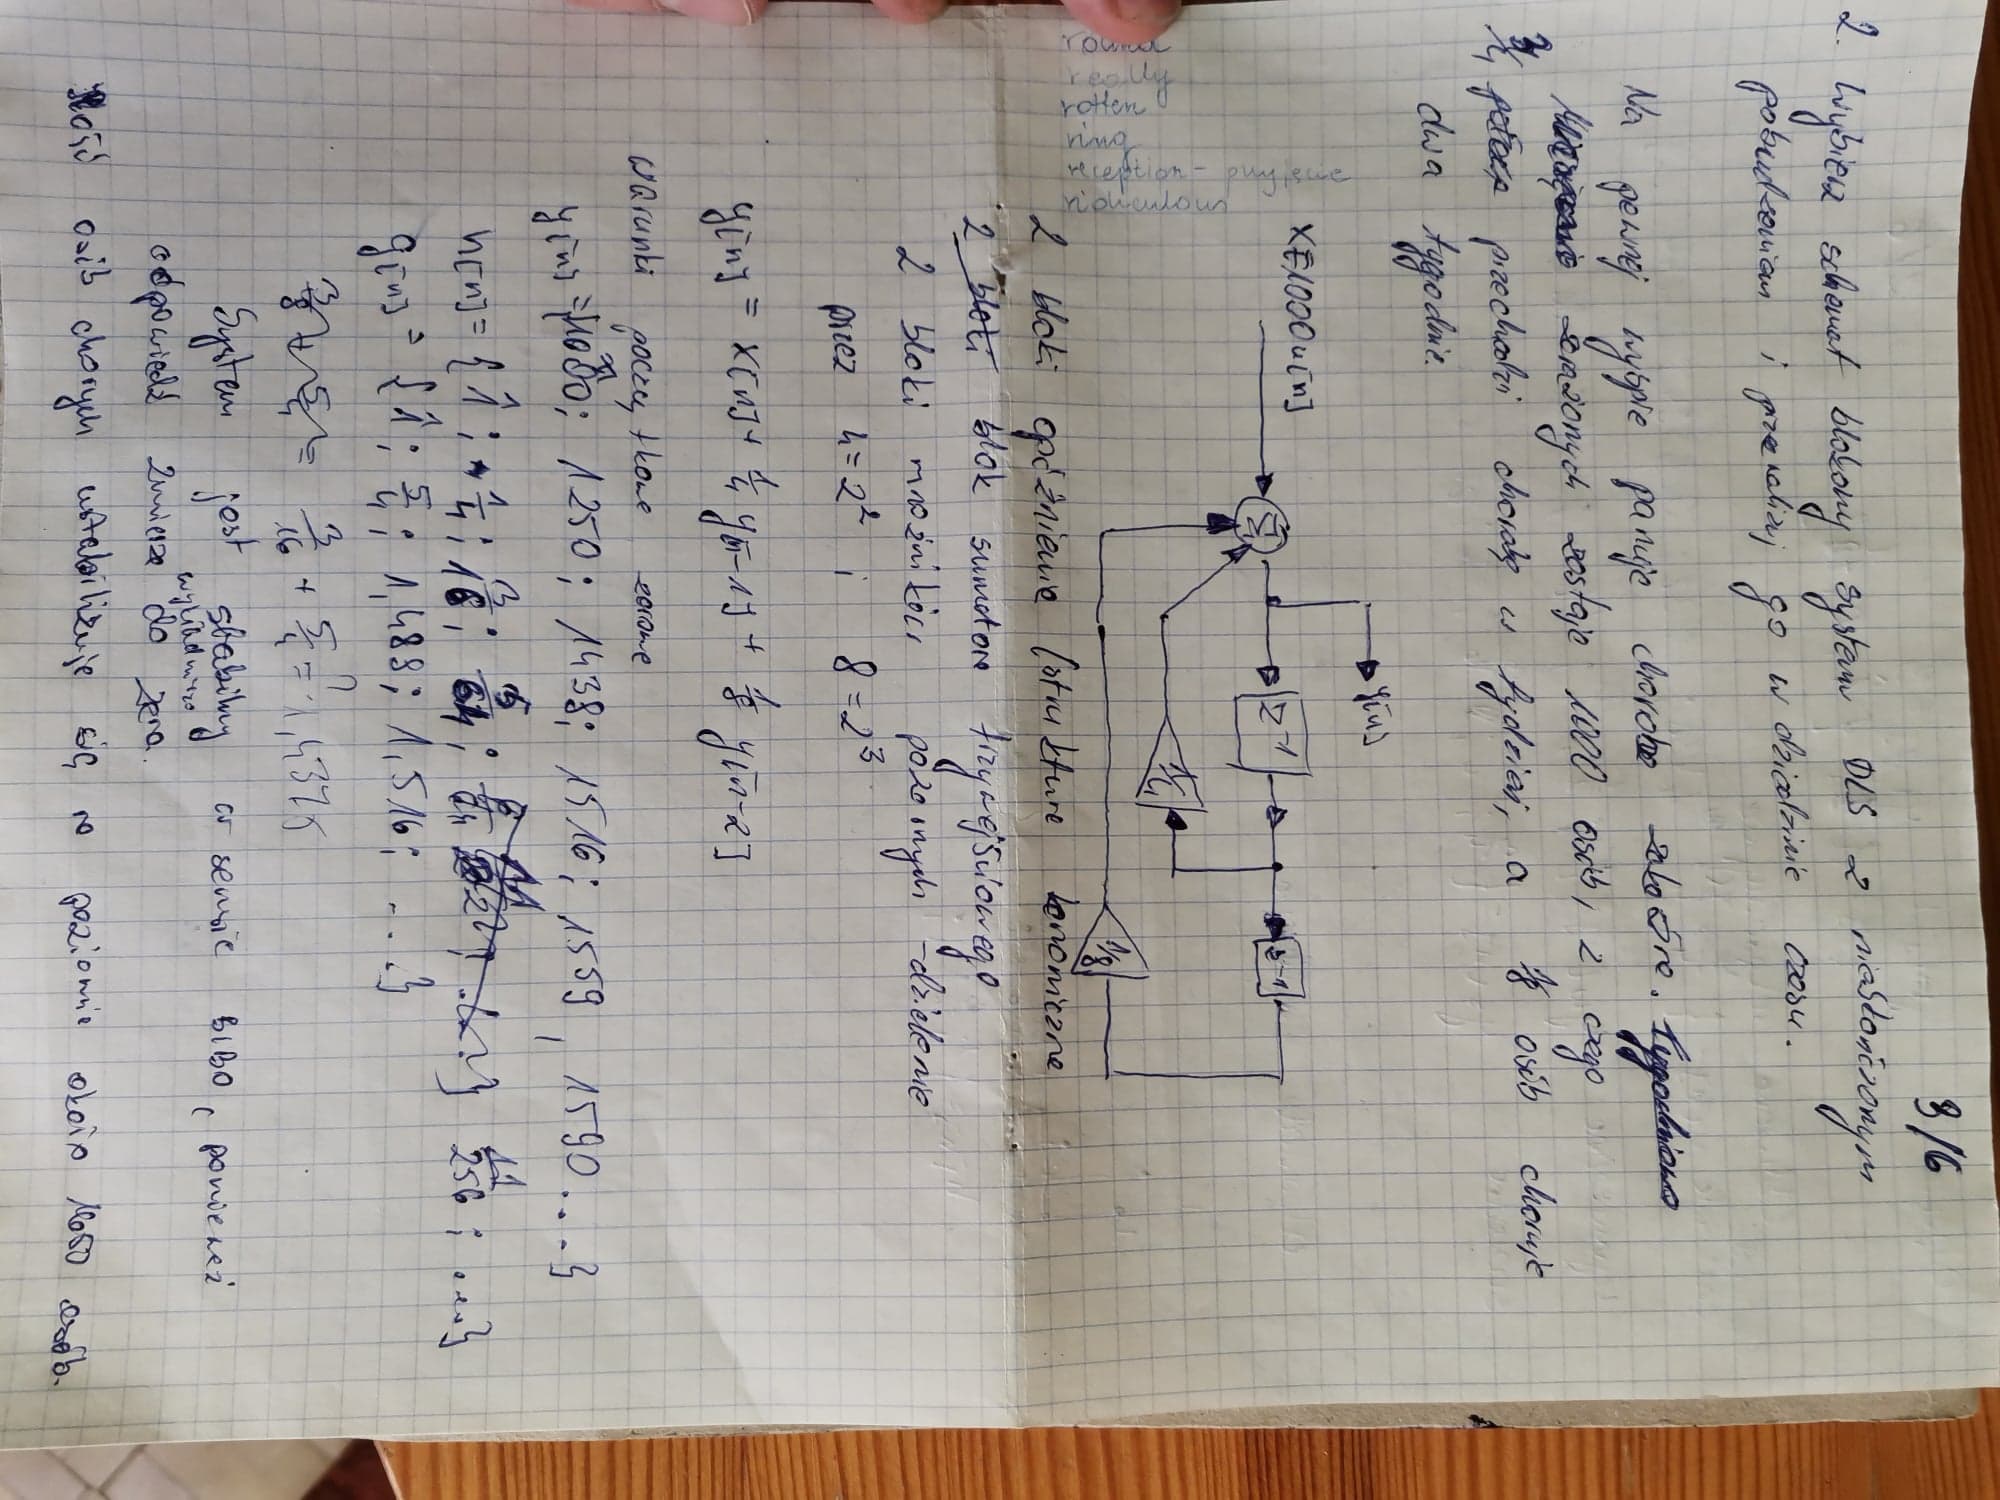 3/6
2. Wybierz schemat blokowy systemu DLS z nieskończonym
pobudzeniem i przeanalizuj go w dziedzinie czasu.
Na pewnej wyspie panuje choroba zakaźna.
zarażonych zostaje 1000 osób, z czego
1/4 przechodzi chorobę w tydzień, a 1/8 osób choruje
dwa tygodnie.
round
really
rotten
ring
reception - przyjęcie
ridiculous
x[1000u[n]
y[n]
Σ
z-1
z-1
1/4
1/8
2 bloki opóźnienia (struktura kanoniczna
2 bloki blok sumatora trzywejściowego
2 bloki mnożnikowi pozornych - dzielenie
przez 4=2² i 8=2³
y[n] = x[n] + 1/4 y[n-1] + 1/8 y[n-2]
warunki początkowe zerowe
y[n] = {1000; 1250; 1438; 1516; 1559, 1590 ...}
h[n] = {1; 1/4; 3/16; 5/64; 11/256; ...}
g[n] = {1; 5/4; 1,488; 1,516; ...}
3/16 + 5/4 = 1,4375
System jest stabilny w sensie BIBO, ponieważ
wykładniczo
odpowiedź zmierza do zera.
Ilość osób chorych ustabilizuje się na poziomie około 1650 osób.